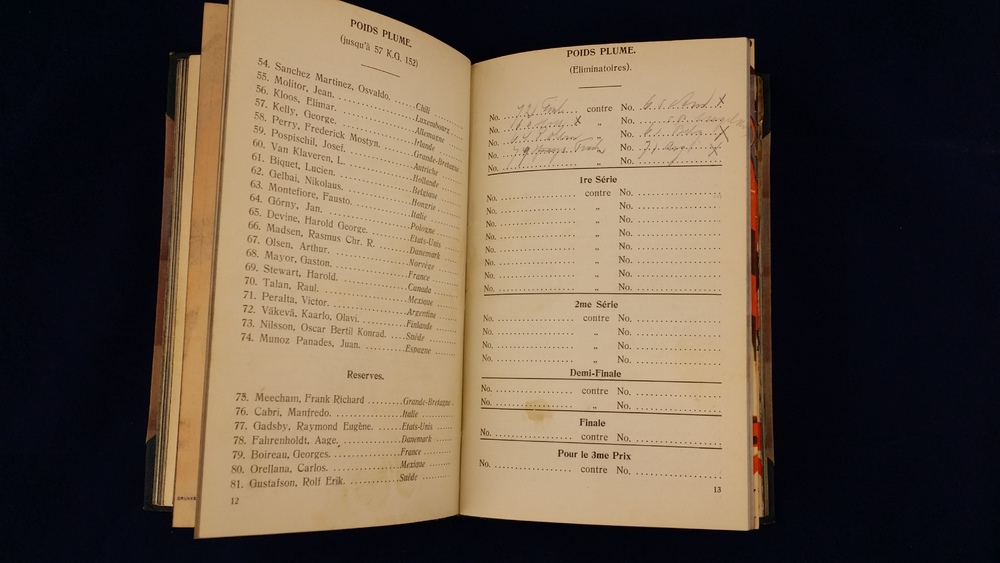 POIDS PLUME.
(jusqu'à 57 K.G. 152)
54. Sanchez Martinez, Osvaldo. Chili
55. Molitor, Jean. Luxembourg
56. Kloos, Elimar. Allemagne
57. Kelly, George. Irlande
58. Perry, Frederick Mostyn. Grande-Bretagne
59. Pospischil, Josef. Autriche
60. Van Klaveren, L. Hollande
61. Biquet, Lucien. Belgique
62. Gelbai, Nikolaus. Hongrie
63. Montefiore, Fausto. Italie
64. Górny, Jan. Pologne
65. Devine, Harold George. Etats-Unis
66. Madsen, Rasmus Chr. R. Danemark
67. Olsen, Arthur. Norvège
68. Mayor, Gaston. France
69. Stewart, Harold. Canada
70. Talan, Raul. Mexique
71. Peralta, Victor. Argentine
72. Väkevä, Kaarlo, Olavi. Finlande
73. Nilsson, Oscar Bertil Konrad. Suède
74. Munoz Panades, Juan. Espagne
Reserves.
75. Meecham, Frank Richard Grande-Bretagne
76. Cabri, Manfredo. Italie
77. Gadsby, Raymond Eugène. Etats-Unis
78. Fahrenholdt, Aage. Danemark
79. Boireau, Georges. France
80. Orellana, Carlos. Mexique
81. Gustafson, Rolf Erik. Suède
12
POIDS PLUME.
(Eliminatoires).
No. contre No.
No. „ No.
No. „ No.
No. „ No.
No.
1re Série
No. contre No.
No. „ No.
No. „ No.
No. „ No.
No. „ No.
No. „ No.
No. „ No.
No. „ No.
2me Série
No. contre No.
No. „ No.
No. „ No.
No. „ No.
Demi-Finale
No. contre No.
No. „ No.
Finale
No. contre No.
Pour le 3me Prix
No. contre No.
13